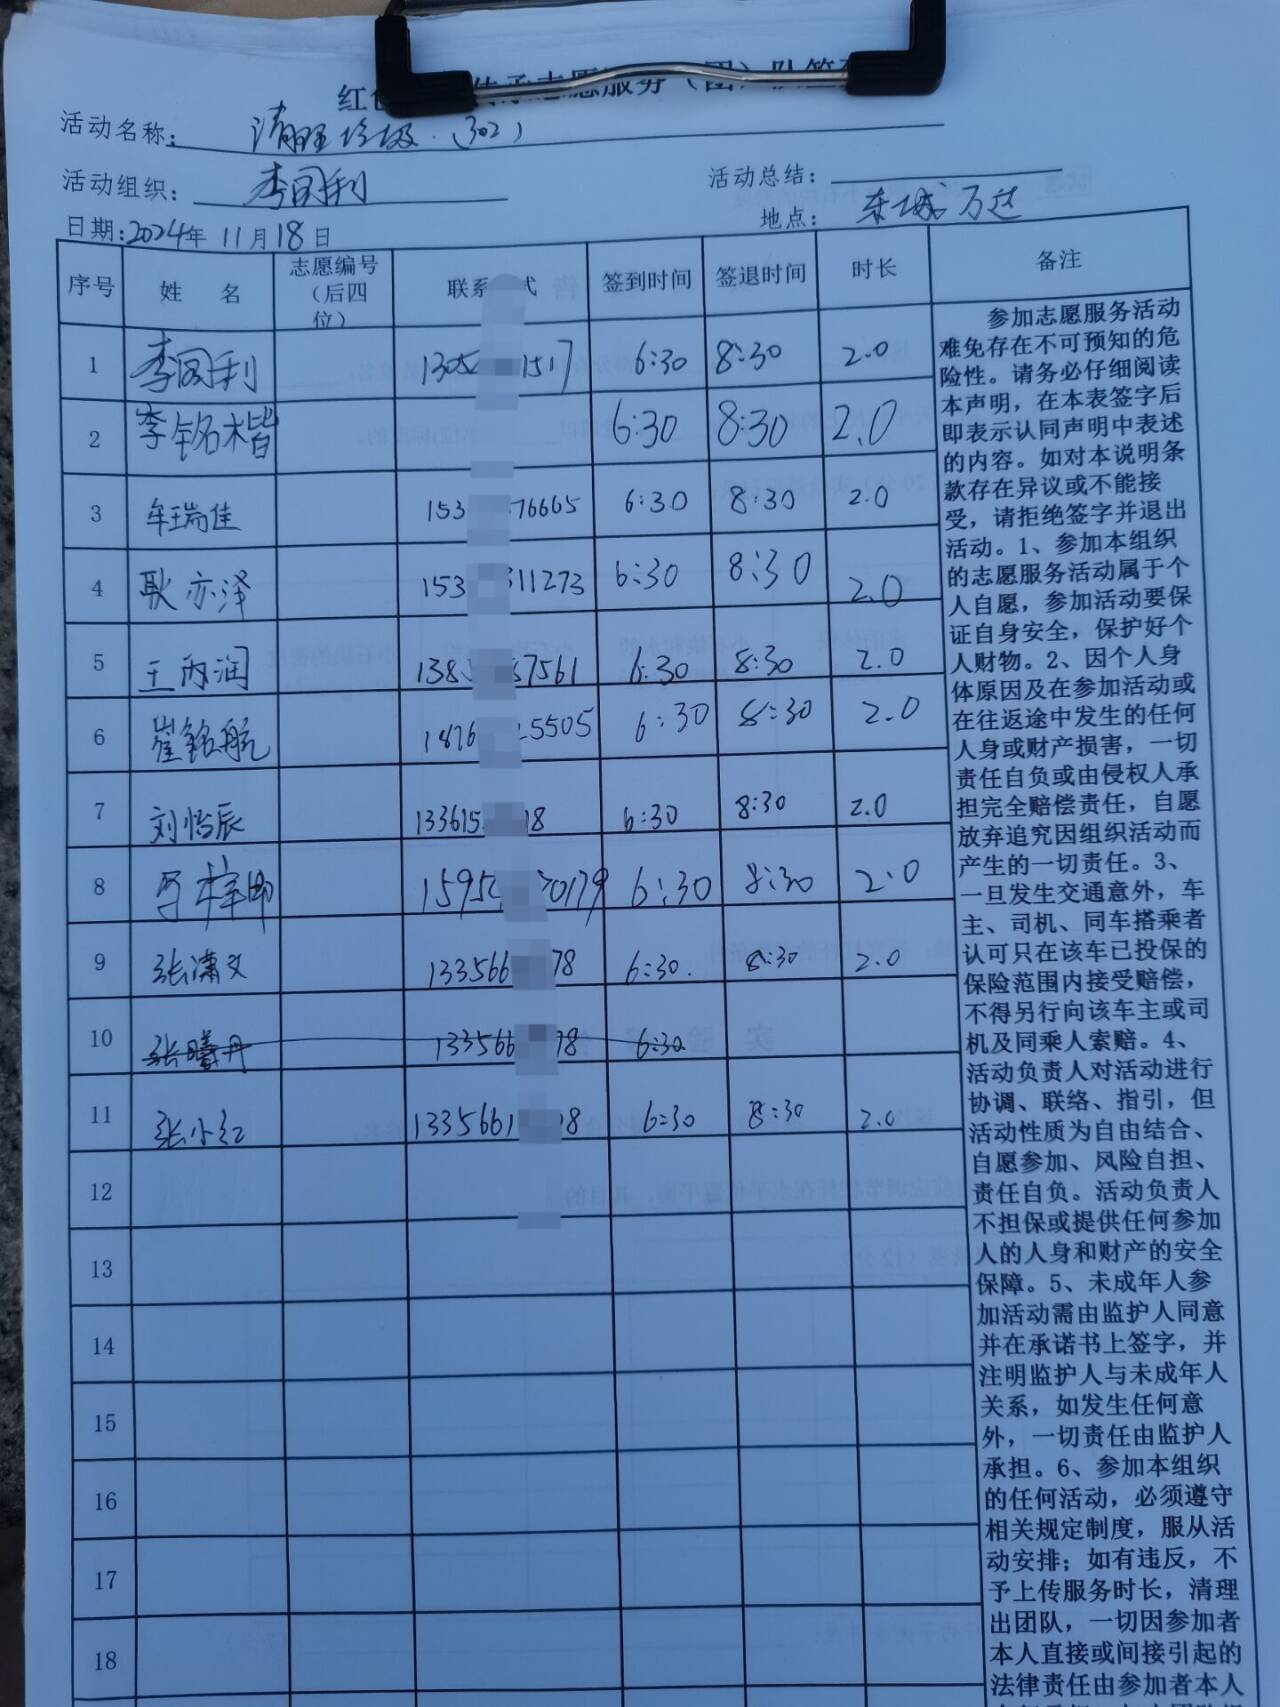 红色 传承志愿服务（团）队签到
活动名称: 清理垃圾.（302）
活动组织: 李国利 活动总结:
日期:2024年 11月18日 地点: 东城万达
序号 姓 名 志愿编号（后四位） 联系 式 签到时间 签退时间 时长 备注
1 李国利 1305 1517 6:30 8:30 2.0
2 李铭楷 6:30 8:30 2.0
3 牟瑞佳 153 76665 6:30 8:30 2.0
4 耿亦泽 153 311273 6:30 8:30 2.0
5 王丙润 1385 37561 6:30 8:30 2.0
6 崔铭航 1876 5505 6:30 8:30 2.0
7 刘怡辰 133615 18 6:30 8:30 2.0
8 1595 0179 6:30 8:30 2.0
9 张潇文 133566 78 6:30. 8:30 2.0
10 张曦丹 133566 78 6:30
11 张小红 1335661 8 6:30 8:30 2.0
12
13
14
15
16
17
18
参加志愿服务活动
难免存在不可预知的危
险性。请务必仔细阅读
本声明，在本表签字后
即表示认同声明中表述
的内容。如对本说明条
款存在异议或不能接
受，请拒绝签字并退出
活动。1、参加本组织
的志愿服务活动属于个
人自愿，参加活动要保
证自身安全，保护好个
人财物。2、因个人身
体原因及在参加活动或
在往返途中发生的任何
人身或财产损害，一切
责任自负或由侵权人承
担完全赔偿责任，自愿
放弃追究因组织活动而
产生的一切责任。3、
一旦发生交通意外，车
主、司机、同车搭乘者
认可只在该车已投保的
保险范围内接受赔偿，
不得另行向该车主或司
机及同乘人索赔。4、
活动负责人对活动进行
协调、联络、指引，但
活动性质为自由结合、
自愿参加、风险自担、
责任自负。活动负责人
不担保或提供任何参加
人的人身和财产的安全
保障。5、未成年人参
加活动需由监护人同意
并在承诺书上签字，并
注明监护人与未成年人
关系，如发生任何意
外，一切责任由监护人
承担。6、参加本组织
的任何活动，必须遵守
相关规定制度，服从活
动安排；如有违反，不
予上传服务时长，清理
出团队，一切因参加者
本人直接或间接引起的
法律责任由参加者本人